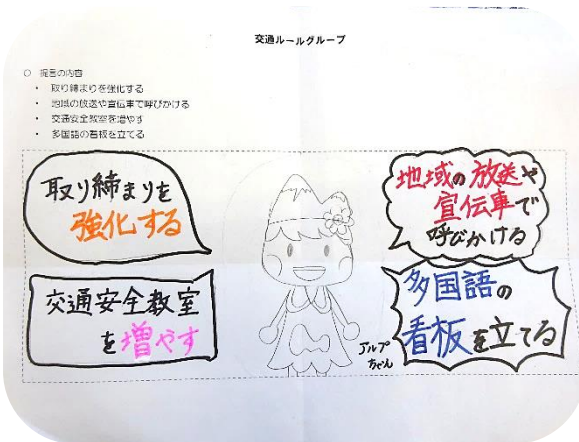 交通ルールグループ
○ 提言の内容
・ 取り締まりを強化する
・ 地域の放送や宣伝車で呼びかける
・ 交通安全教室を増やす
・ 多国語の看板を立てる
取り締まりを
強化する
地域の放送や
宣伝車で
呼びかける
交通安全教室
を増やす
多国語の
看板を立てる
アルプ
ちゃん